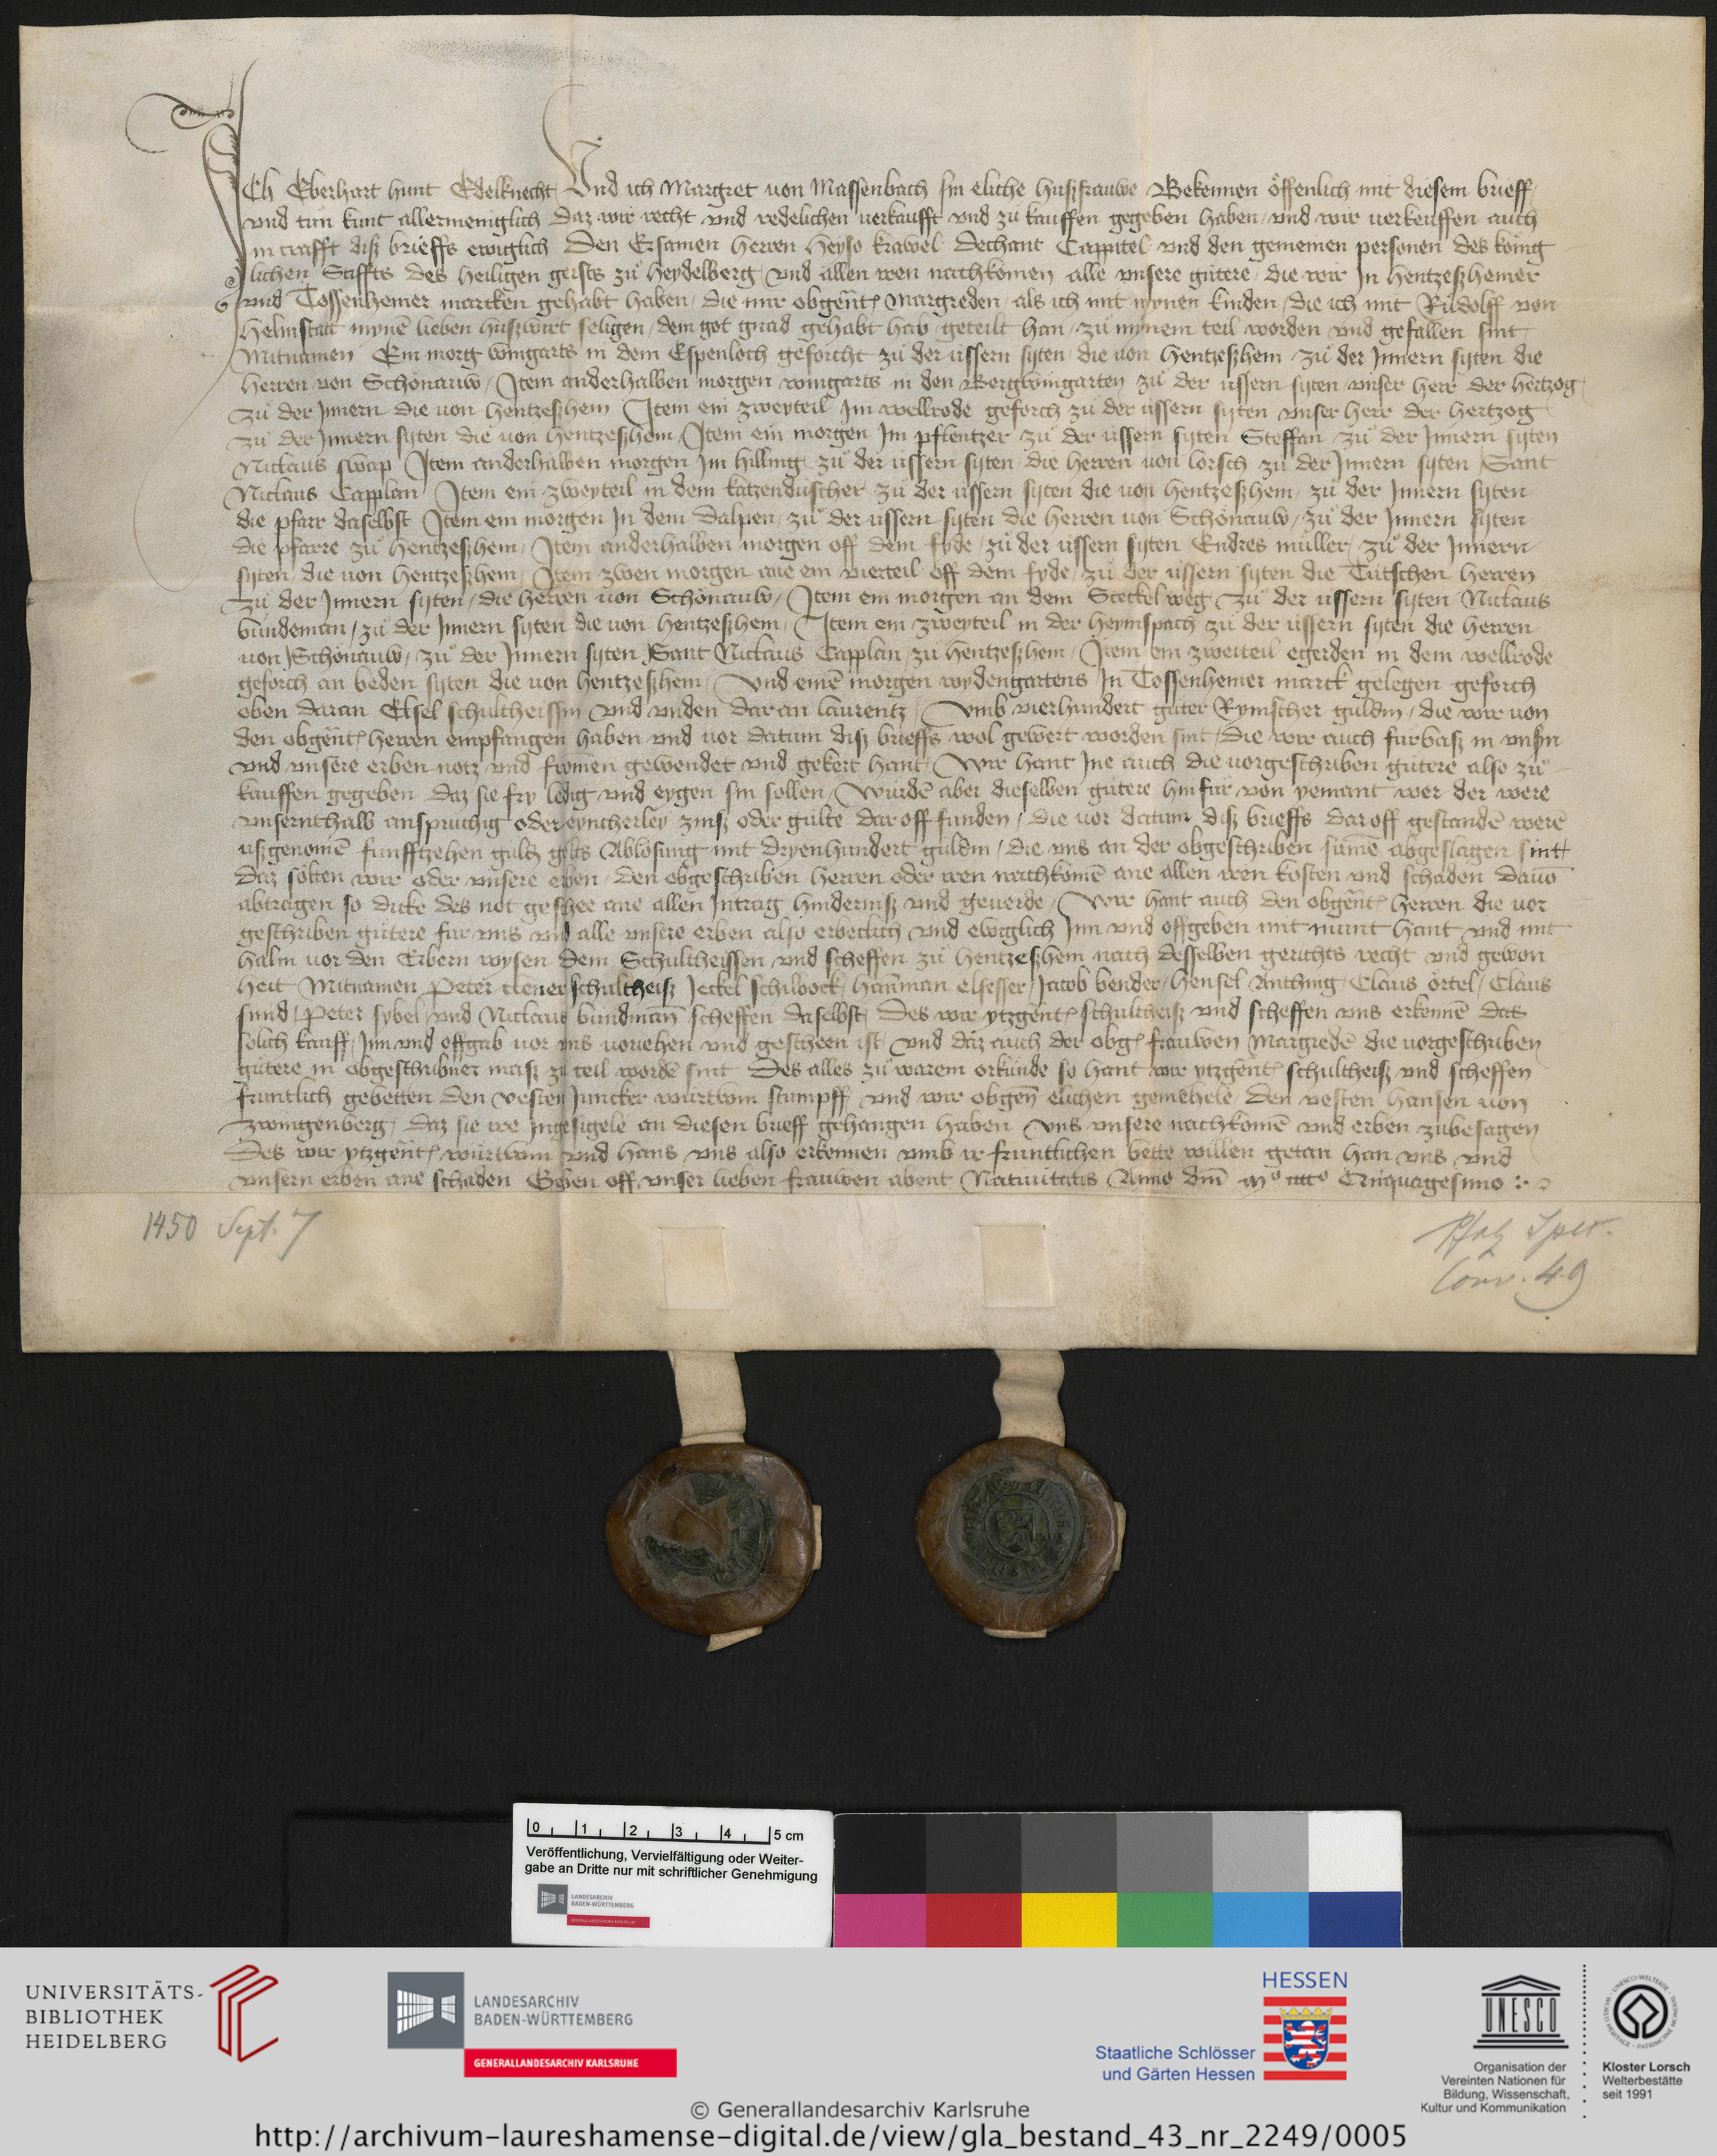 ICh Eberhart hunt Edelknecht Vnd ich Margret von Massenbach sin eliche huszfrauwe Bekennen offenlich mit diesem brieff
vnd tun kunt allermeniglich daz wir recht vnd redelichen verkaufft vnd zu kauffen gegeben haben vnd wir verkeuffen auch
in crafft disz brieffs ewiglich Den Ersamen herren heyso krawel dechant Cappitel vnd den gemeinen personen des konig
lichen Stiffts des heiligen geists zu heydelberg vnd allen iren nachkomen alle vnsere gutere die wir In hentzeszhemer
vnd Dossenhemer marcken gehabt haben die mir obgent Margreden als ich mit mynen kinden die ich mit Rudolff von
helmstatt myne lieben huszwirt seligen dem got gnad gehabt hab geteilt han zu mynem teil worden vnd gefallen sint
Mitnamen Ein morg wingarts in dem Espenloch geforcht zu der ussern syten die von hentzeszhem zu der Innern syten die
herren von Schonauw Item anderhalben morgen wingarts in den Bergwingarten zu der ussern syten vnser herr der hertzog
zu der Innern die von hentzeszhem Item ein zweyteil Im wellrode geforch zu der ussern syten vnser herr der hertzog
zu der Innern syten die von hentzeszhem Item ein morgen Im pflentzer zu der ussern syten Steffan zu der Innern syten
Niclaus swap Item anderhalben morgen Im hilling zu der ussern syten die herren von lorsch zu der Innern syten Sant
Niclaus Capplan Item ein zweyteil in dem katzenduscher zu der ussern syten die von hentzeszhem zu der Innern syten
die pfarr daselbst Item ein morgen In dem dalpen zu der ussern syten die herren von Schonauw zu der Innern syten
die pfarre zu hentzeszhem Item anderhalben morgen off dem fyde zu der ussern syten Endres muller zu der Innern
syten die von hentzeszhem Item zwen morgen ane ein vierteil off dem fyde zu der ussern syten die Tutschen herren
zu der Innern syten die herren von Schonauw Item ein morgen an dem Steckel weg zu der ussern syten Niclaus
bundeman zu der Innern syten die von hentzeszhem Item ein zweyteil in der heymspach zu der ussern syten die herren
von Schonauw zu der Innern syten Sant Niclaus Capplan zu hentzeszhem Item ein zweiteil egerden in dem wellrode
geforch an beden syten die von hentzeszhem Vnd eine morgen wydengartens In Dossenhemer marck gelegen geforch
oben daran Elsel schultheissin vnd vnden daran laurentz Vmb vierhundert guter Rynischer guldin die wir von
den obgent herren empfangen haben vnd vor datum disz brieffs wol gewert worden sint die wir auch furbasz in vnsn
vnd vnsere erben notz vnd fromen gewendet vnd gekert hant Wir hant Ine auch die vorgeschriben gutere also zu
kauffen gegeben daz sie fry ledig vnd eygen sin sollen Wurde aber dieselben gutere hinfur von yemant wer der were
vnsernthalb anspruchig oder eyncherley zinsz oder gulte dar off funden die vor datum disz brieffs dar off gestande were
uszgenome funfftzehen guld gelts Ablosung mit dryenhundert guldin die vns an der obgeschriben sume abgeslagen sint
Daz solten wir oder vnsere erben den obgeschriben herren oder iren nachkome ane allen iren kosten vnd schaden dauo
abtragen so dicke des not geschee ane allen Intrag hindernisz vnd geuerde Wir hant auch den obgent herren die vor
geschriben gutere fur vns vnd alle vnsere erben also erbeclich vnd ewiglich Inn vnd offgeben mit munt hant vnd mit
halm vor den Erbern wysen dem Schultheissen vnd scheffen zu hentzeszhem nach desselben gerichts recht vnd gewon
heit Mitnamen Peter clener schultheisz Jeckel schilbock hanman elsesser Jacob bender hensel Anthing Claus ortel Claus
smid Peter sybel vnd Niclaus bundman scheffen daselbst Des wir ytzgent schultheisz vnd scheffen vns erkenne das
solich kauff Inn vnd offgab vor vns vorgehen vnd gescheen ist vnd daz auch der obg frauwen Margrede die vorgeschriben
gutere in obgeschribner masz zu teil worde sint Des alles zu warem orkunde so hant wir ytzgent schultheisz vnd scheffen
fruntlich gebetten den vesten Juncker wiprecht stumpff vnd wir obgen elichen gemehele den vesten hansen von
zwingenberg daz sie ire Ingesigele an diesen brieff gehangen haben Vns vnsere nachkome vnd erben zubesagen
Des wir ytzgent vnd hans vns also erkennen vmb ir fruntlichen bette willen getan han vns vnd
vnsern erben ane schaden Geben off vnser lieben frauwen abent Natiuitatis Anno dni Mo cccco Quinquagesimo
1450 Sept. 7
Pfalz Spec.
Conv. 49
0 1 2 3 4 5 cm
Veröffentlichung, Vervielfältigung oder Weiter-
gabe an Dritte nur mit schriftlicher Genehmigung
LANDESARCHIV
BADEN-WÜRTTEMBERG
GENERALLANDESARCHIV KARLSRUHE
UNIVERSITÄTS-
BIBLIOTHEK
HEIDELBERG
LANDESARCHIV
BADEN-WÜRTTEMBERG
GENERALLANDESARCHIV KARLSRUHE
HESSEN
Staatliche Schlösser
und Gärten Hessen
UNESCO
Organisation der
Vereinten Nationen für
Bildung, Wissenschaft,
Kultur und Kommunikation
Kloster Lorsch
Welterbestätte
seit 1991
© Generallandesarchiv Karlsruhe
http://archivum-laureshamense-digital.de/view/gla_bestand_43_nr_2249/0005